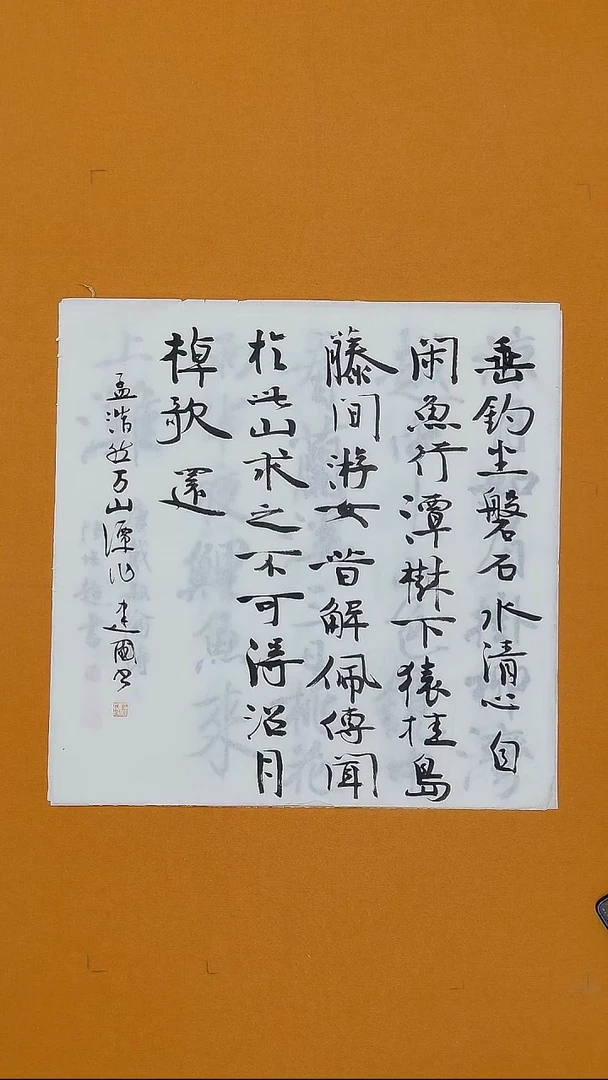 垂钓坐磐石水清心自
閑魚行潭樹下猿挂島
藤間游女昔解佩傳聞
於此山求之不可得沿月
棹歌還
孟浩然万山潭作 建國书